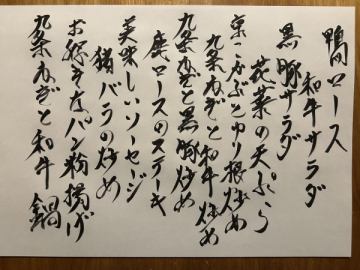 鴨ロース
和牛サラダ
黒豚サラダ
花菜の天ぷら
京こかぶとゆり根炒め
九条ねぎと和牛炒め
九条ねぎと黒豚炒め
鹿ロースのステーキ
美味しいソーセージ
猪バラの炒め
お麩パン粉揚げ
九条ねぎと和牛鍋